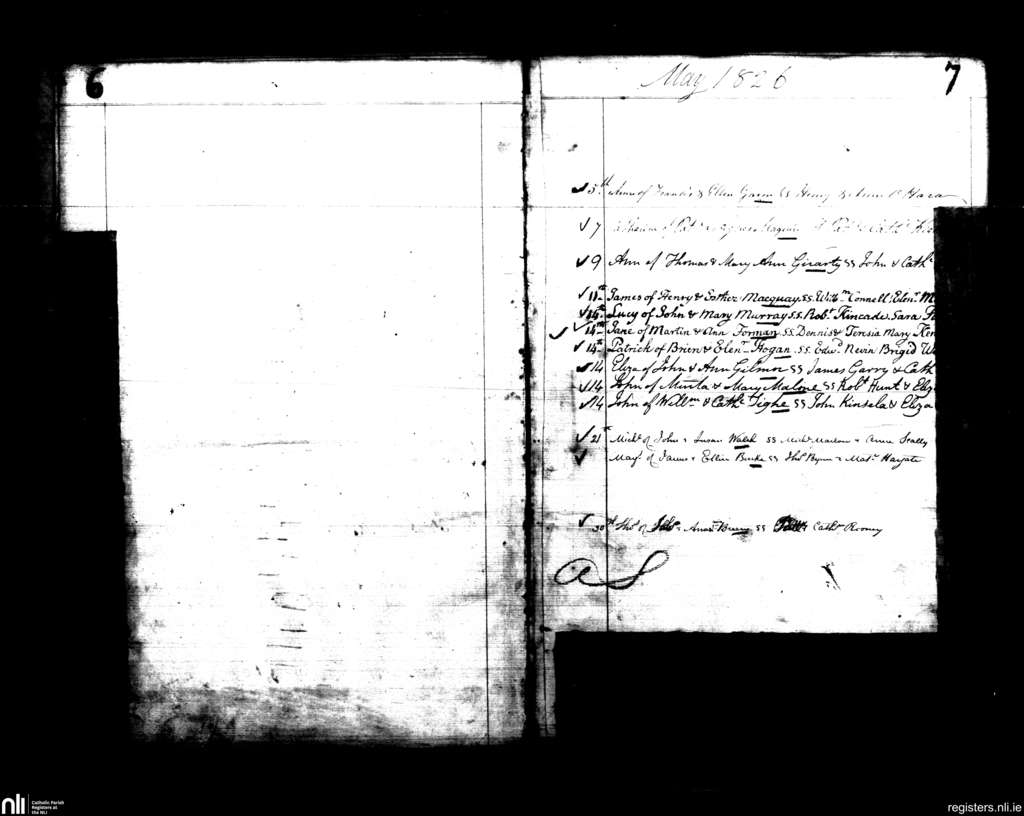 6
May 1826
7
5th Ann of Francis & Ellen Gavin SS Henry & Anne O'Hara
7 Catherine of Patk & Agnes Maguire SS Patk & Cathe
9 Ann of Thomas & Mary Ann Girarty SS John & Cathe
11th James of Henry & Esther Macquay S.S. Willm Connell. Elenr
14th Lucy of John & Mary Murray S.S. Robt Kincade. Sara
14th Jane of Martin & Ann Forman SS. Dennis & Teresia Mary
14th Patrick of Brien & Elenr Hogan. S.S. Edwd Nevin Brigid
14 Eliza of John & Ann Gilmor SS James Garry & Cath
14 John of & Mary Malone SS Robt Hunt & Eliz
14 John of Willm & Cathe Tighe SS John Kinsela & Eliza
21st Michl of John & Susan Walsh SS Michl & Anne Scally
Mary of James & Ellen Burke SS Thos Byrne & Mary
30th Thos of & Burne SS Cathe Rooney
nli
Catholic Parish
Registers at
the NLI
registers.nli.ie